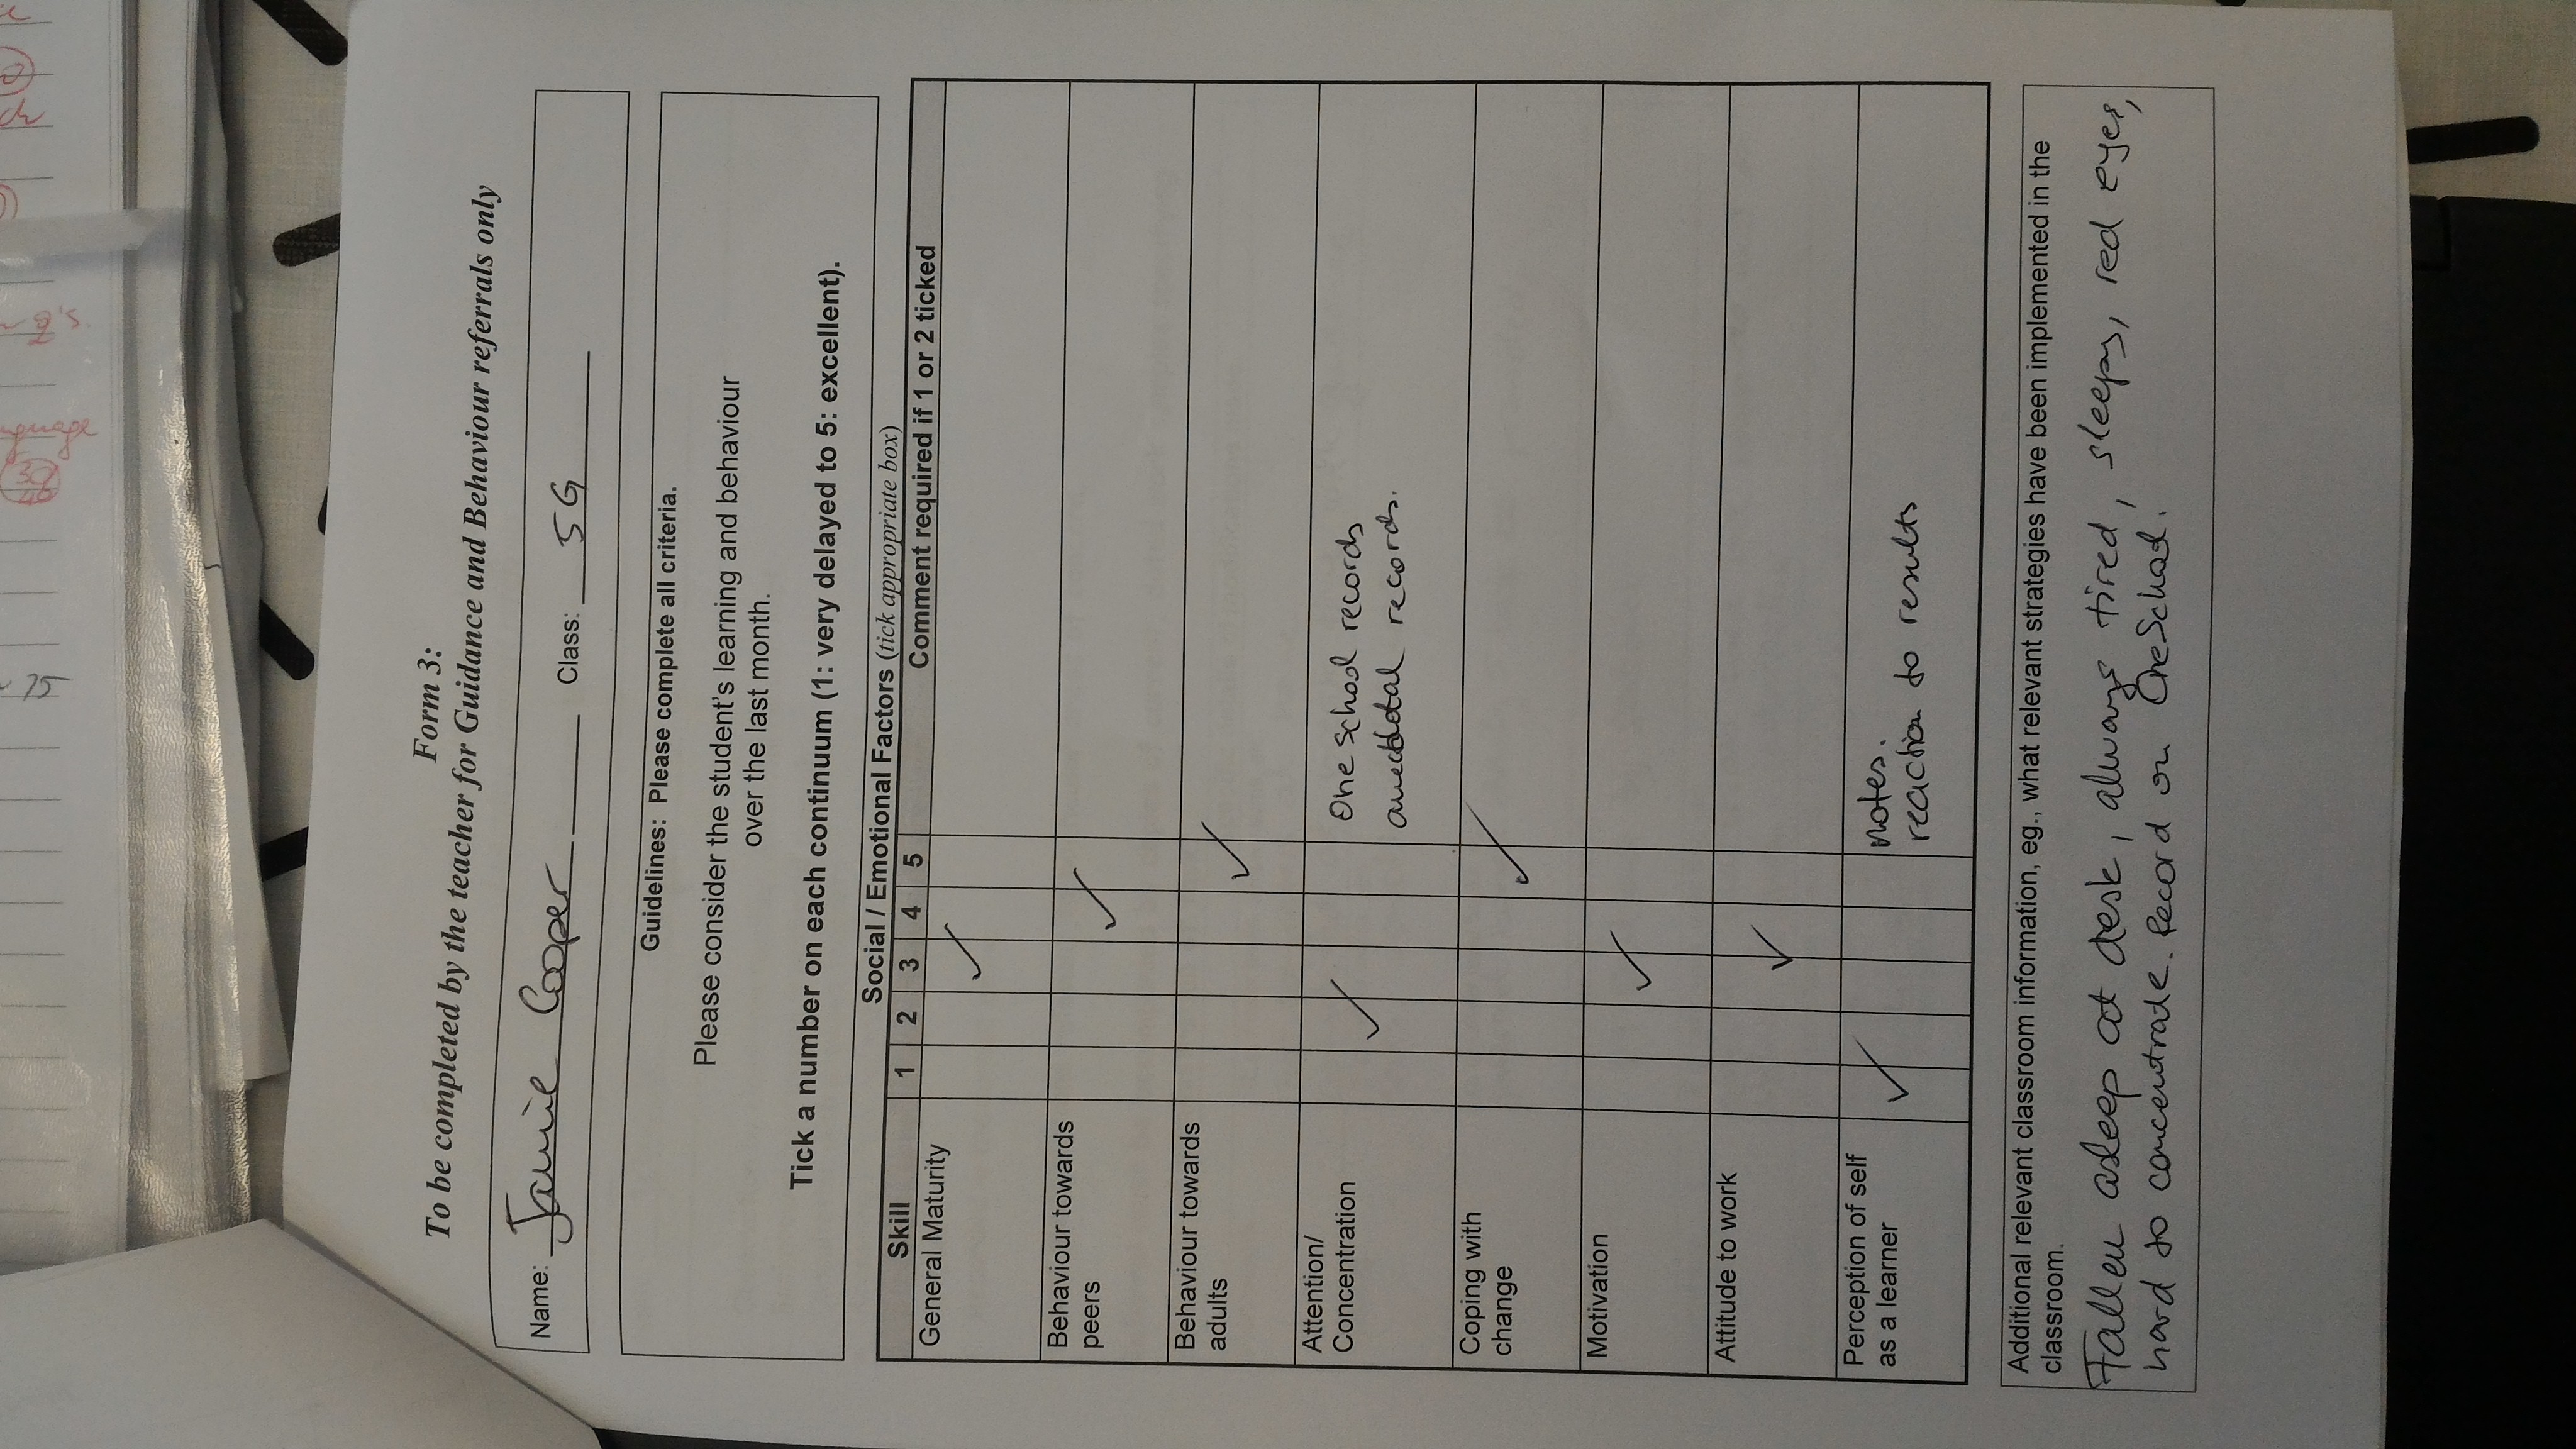 25
2's.
Form 3:
To be completed by the teacher for Guidance and Behaviour referrals only
Name: Jamie Cooper Class: 5G
Guidelines: Please complete all criteria.
Please consider the student's learning and behaviour
over the last month.
Tick a number on each continuum (1: very delayed to 5: excellent).
Social / Emotional Factors (tick appropriate box)
Skill 1 2 3 4 5 Comment required if 1 or 2 ticked
General Maturity ✓
Behaviour towards
peers ✓
Behaviour towards
adults ✓
Attention/
Concentration ✓ One School records
anecdotal records.
Coping with
change ✓
Motivation ✓
Attitude to work ✓
Perception of self
as a learner ✓ notes.
reaction to results
Additional relevant classroom information, eg., what relevant strategies have been implemented in the
classroom.
Fallen asleep at desk, always tired, sleepy, red eyes,
hard to concentrate. Record on OneSchool.